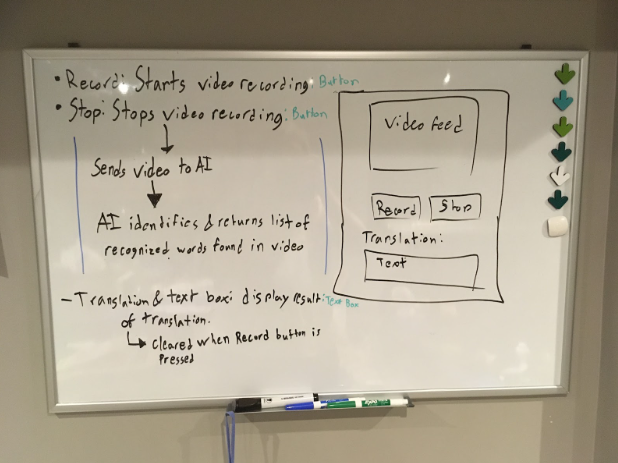 • Record: Starts video recording: Button
• Stop: Stops video recording: Button
Sends video to AI
AI identifies & returns list of
recognized words found in video
– Translation & text box: display result: Text Box
of translation.
cleared when Record button is
Pressed
Video feed
Record
Stop
Translation:
Text